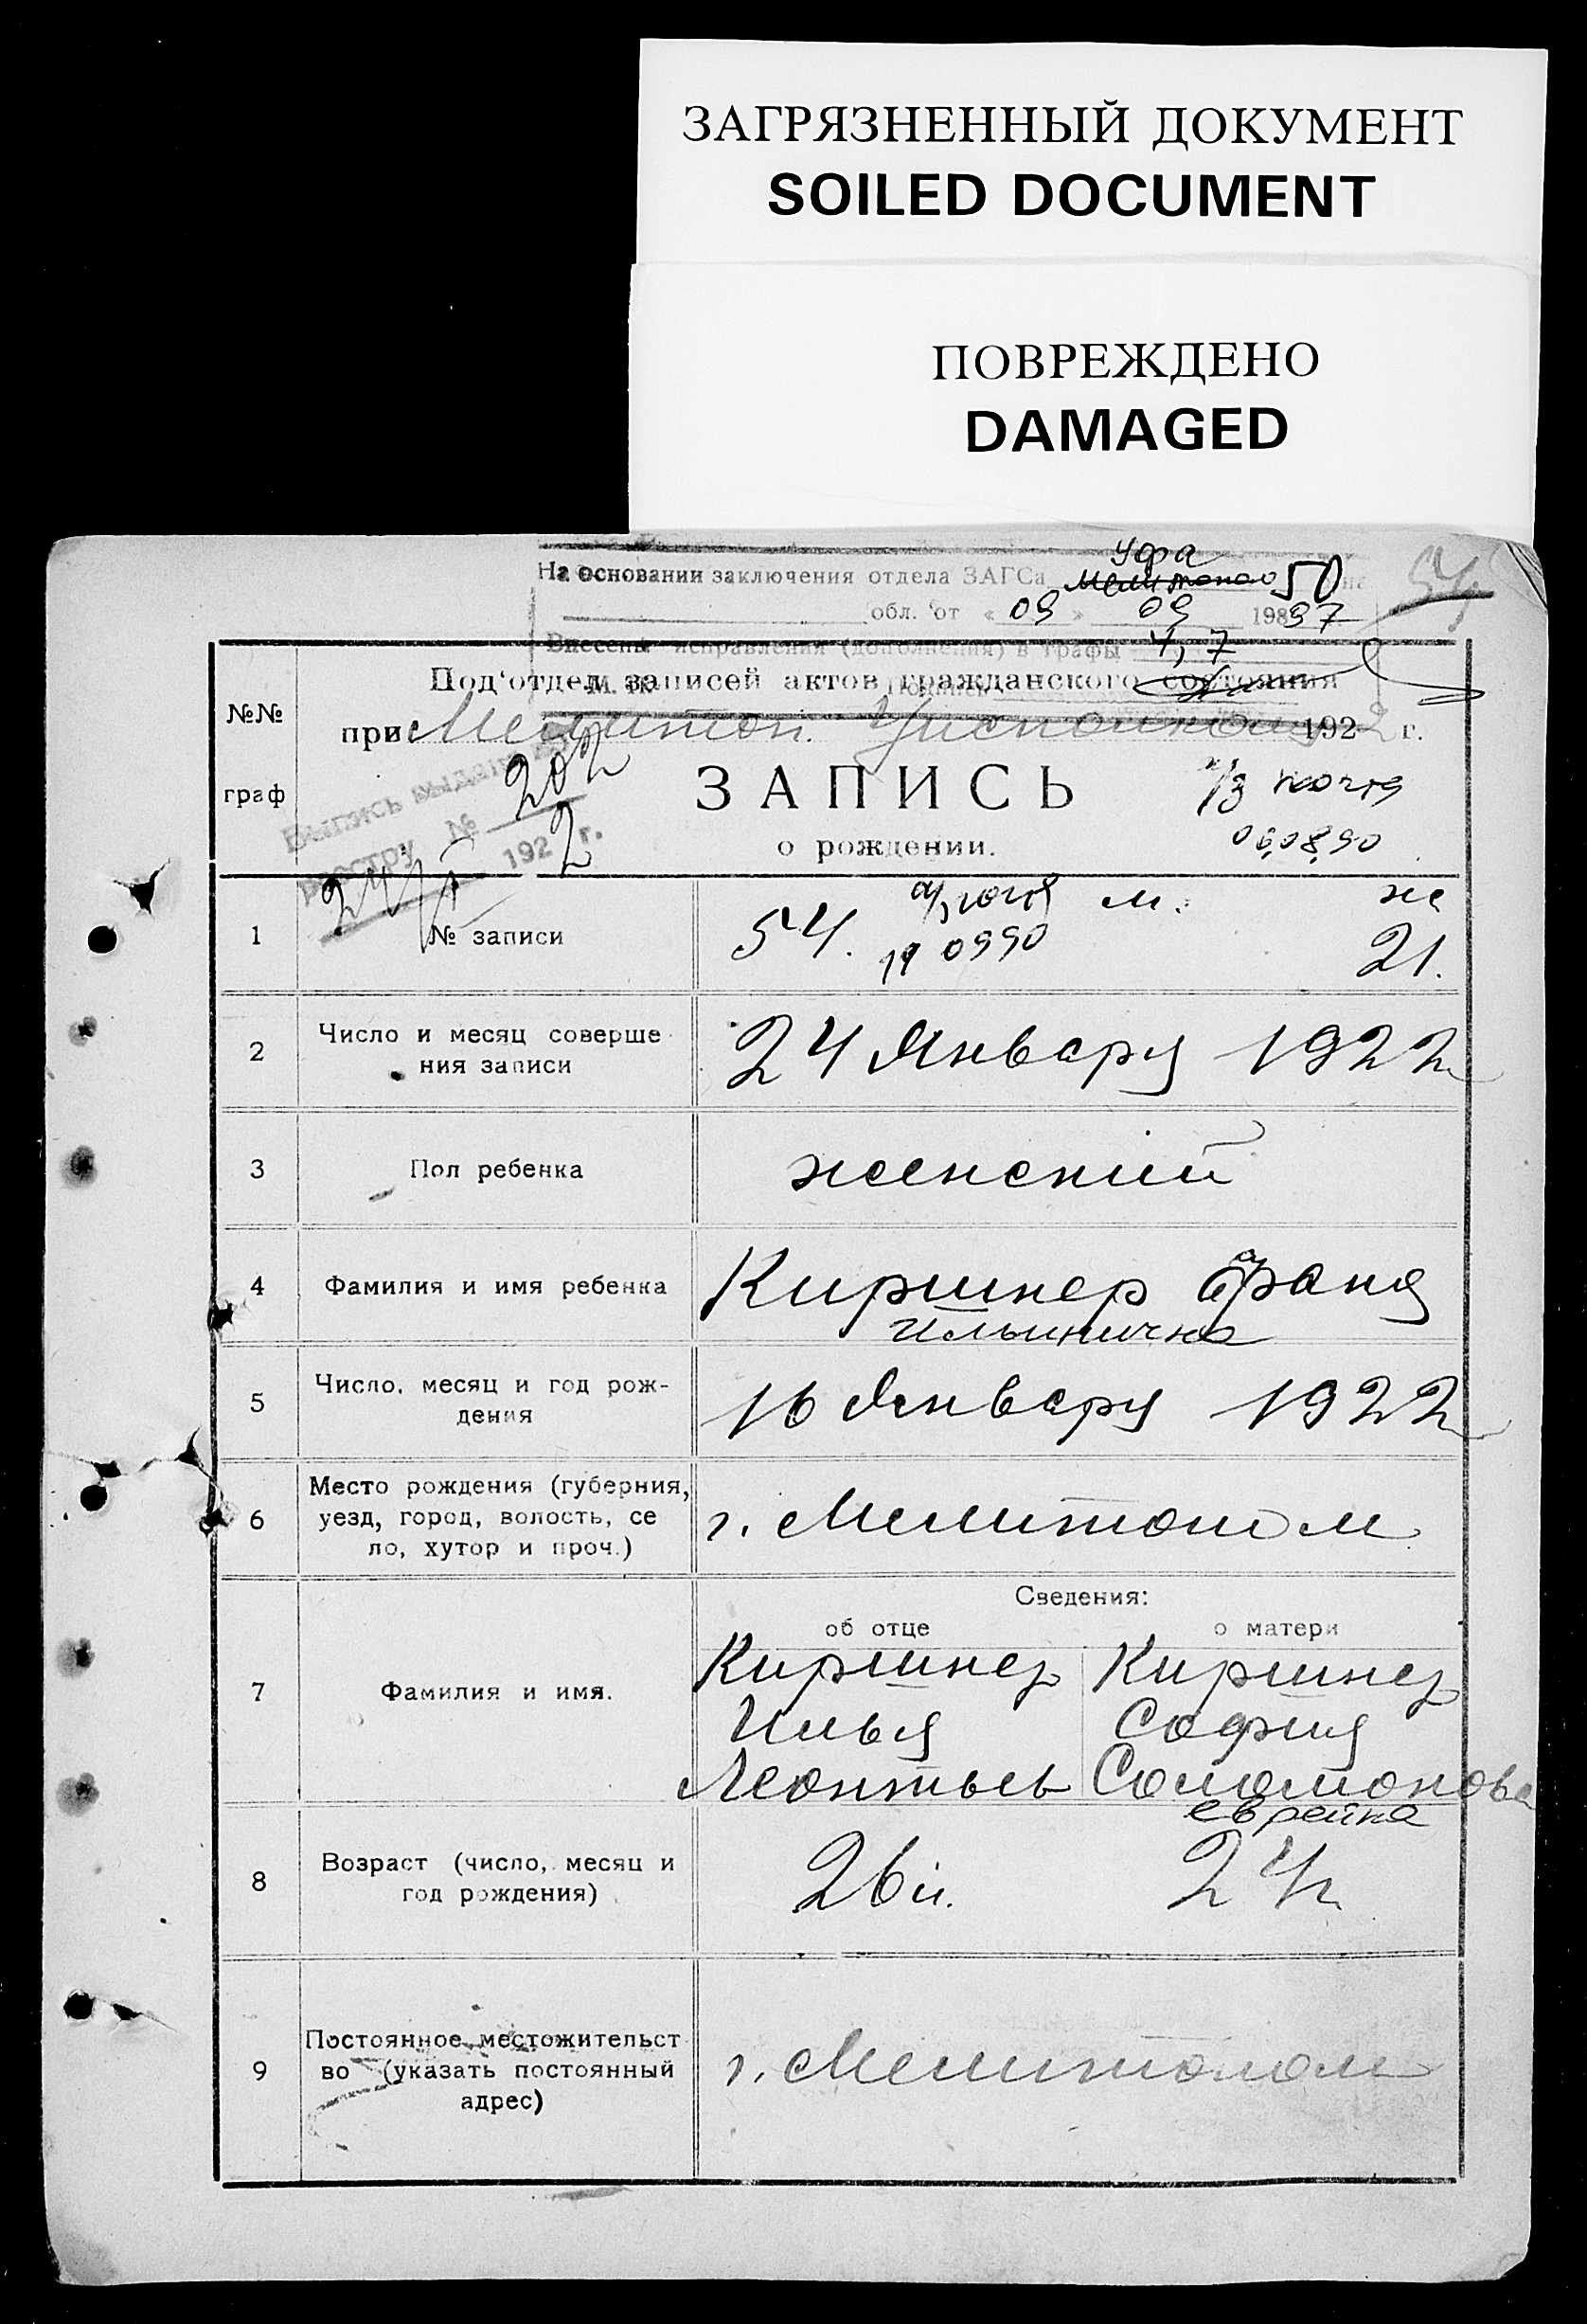 ЗАГРЯЗНЕННЫЙ ДОКУМЕНТ
SOILED DOCUMENT
ПОВРЕЖДЕНО
DAMAGED
Уфа
На основании заключения отдела ЗАГСа 50
обл. от « 09 » 09 1997
Внесены исправления (дополнения) в графы 4, 7
Под'отдел записей актов гражданского состояния
№№ граф
при Мелитоп. Уисполкоме 1922 г.
Выпись выдана
реестру № 202
192 2 г.
ЗАПИСЬ
о рождении.
060890
1 № записи 54. м. ж 21.
190990
2 Число и месяц соверше
ния записи
24 Января 1922
3 Пол ребенка женский
4 Фамилия и имя ребенка Киршнер Фаня
Ильинична
5 Число, месяц и год рож-
дения
16 Января 1922
6 Место рождения (губерния,
уезд, город, волость, се
ло, хутор и проч.)
г. Мелитополь
Сведения:
об отце о матери
7 Фамилия и имя.
Киршнер Киршнер
Илья София
Леонтьев Соломонова
еврейка
8 Возраст (число, месяц и
год рождения)
26 л. 24 л.
9 Постоянное местожительст
во (указать постоянный
адрес)
г. Мелитополь